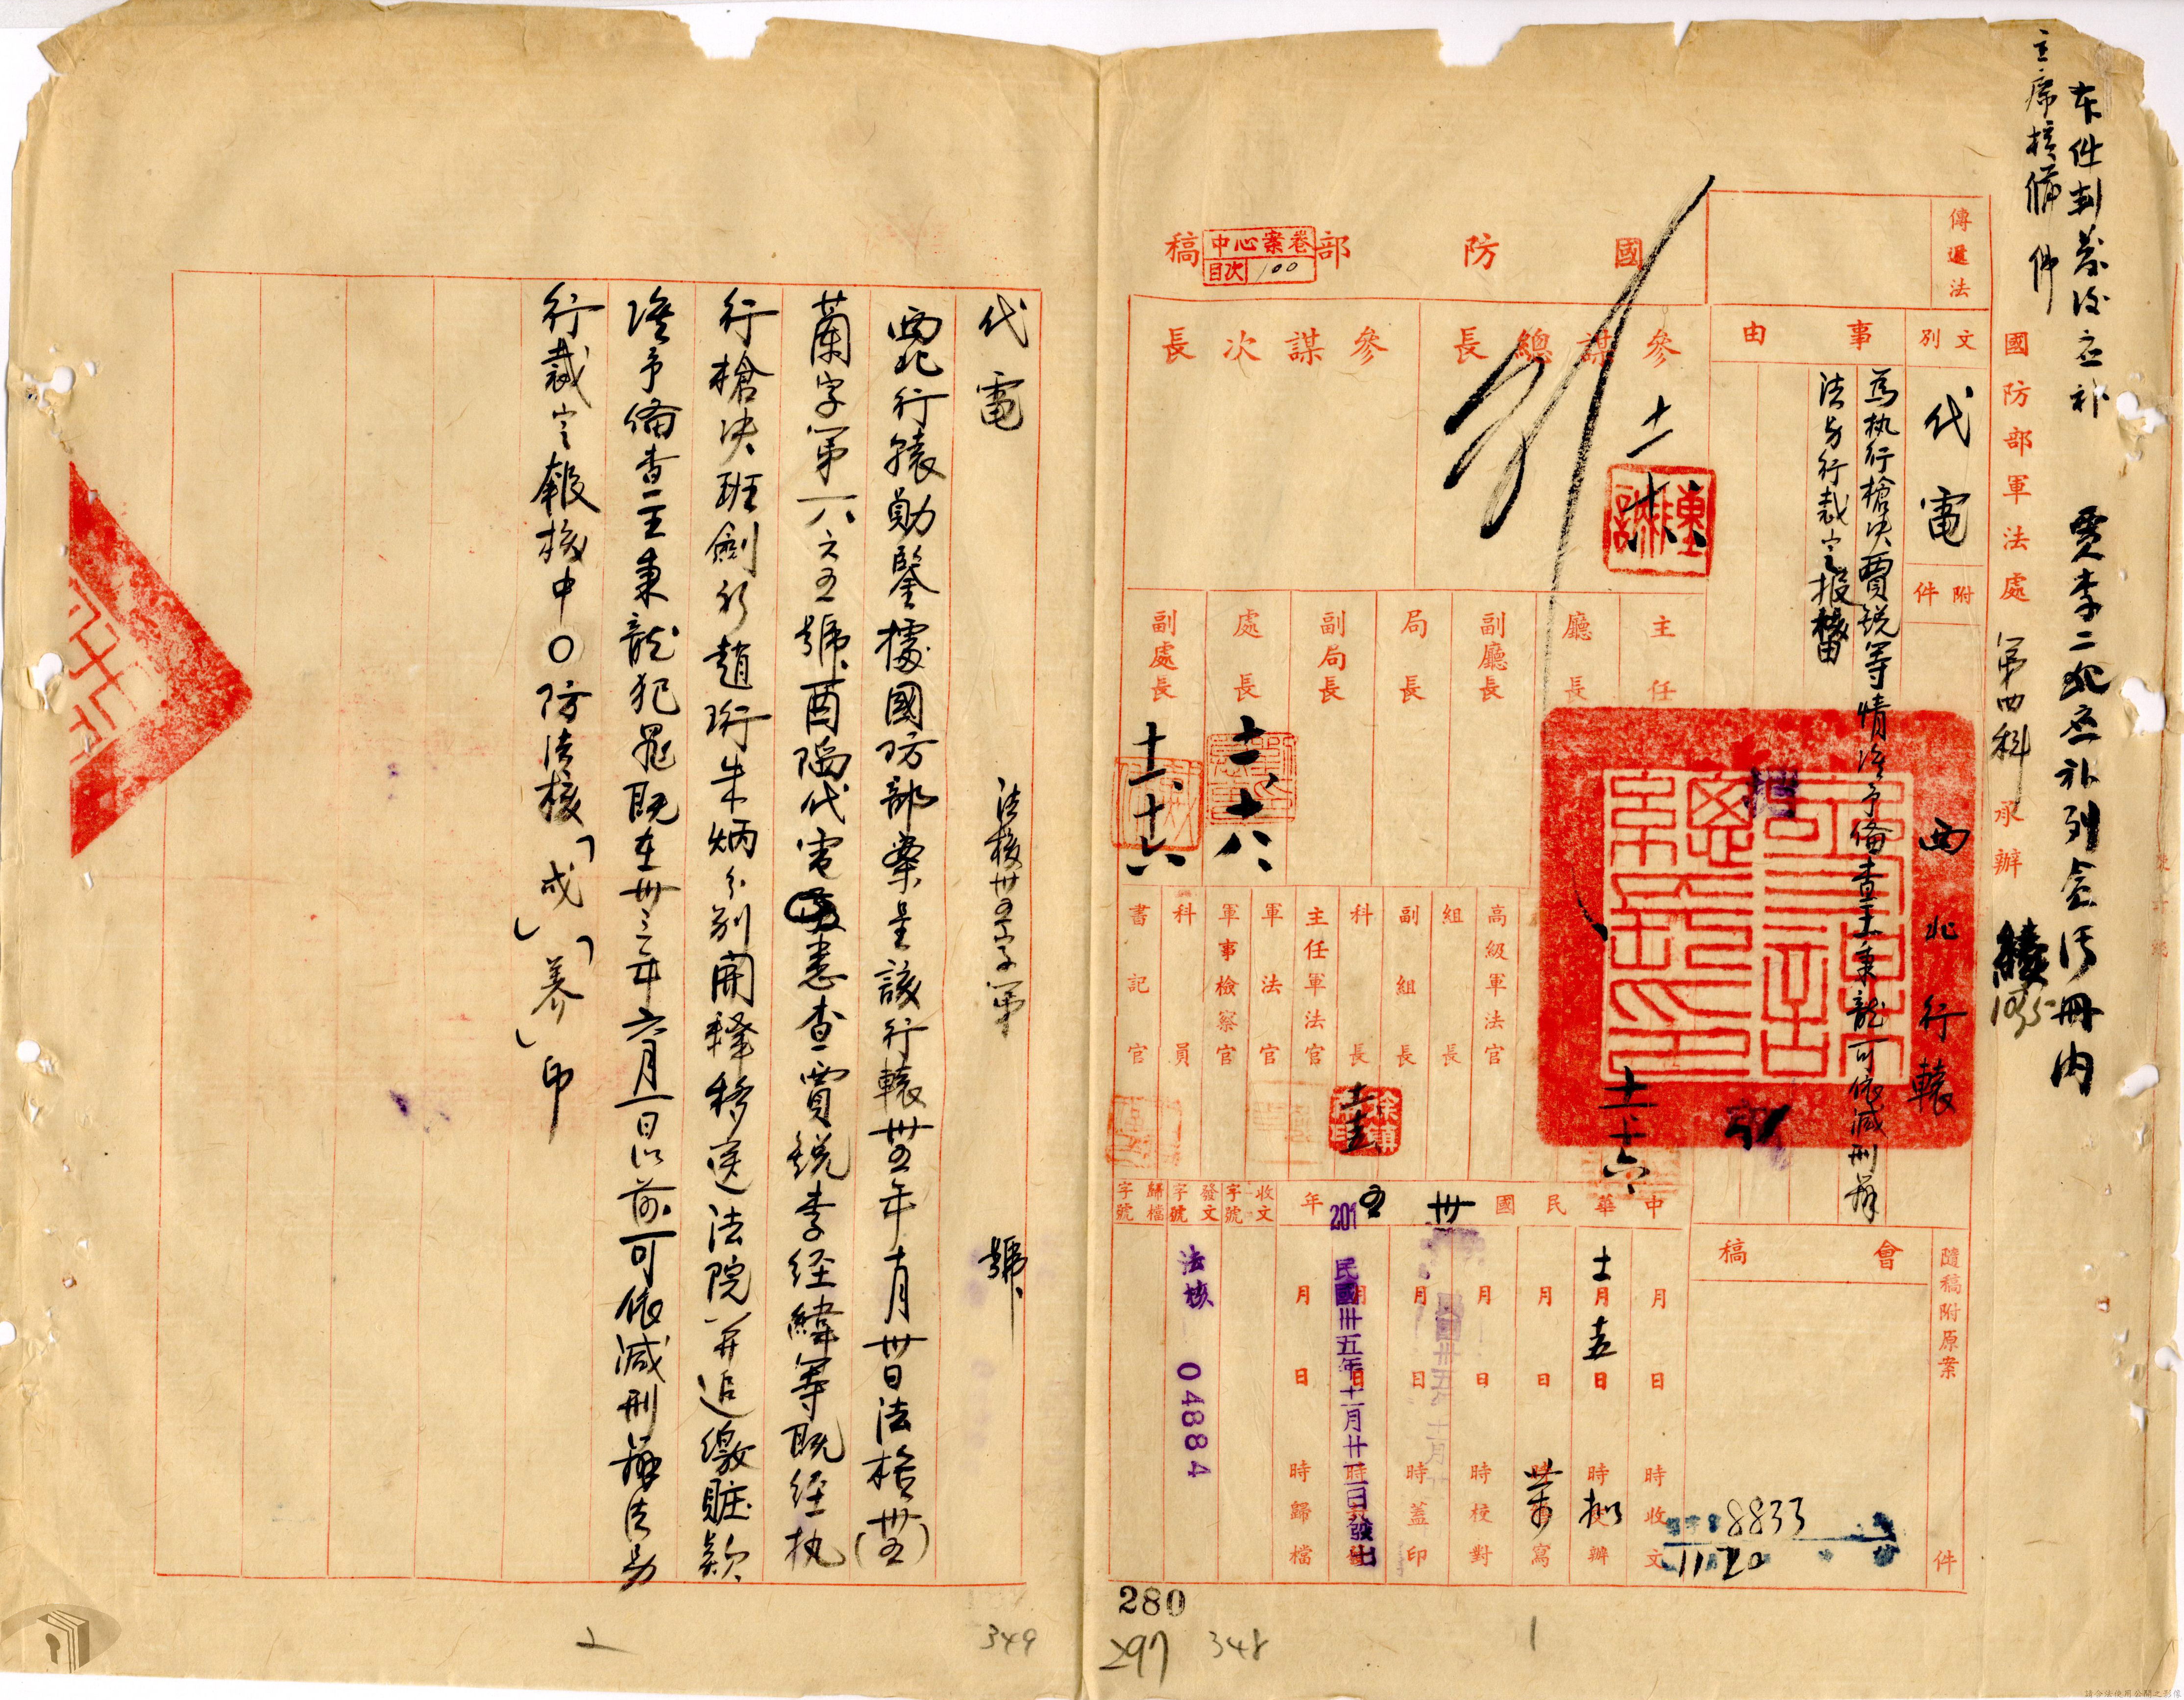 本件判發後应补
賈李二犯应补列貪污冊内
主席核備件
國防部軍法處 第四科 承辦
國防部稿
中心案卷
目次 100
傳遞法
文別 代電
附件
西北行轅
事由
為执行槍决賈銳等情准予備查王秉龍可依减刑辦
法另行裁定报核由
參謀總長
參謀次長
十一
主任
廳長
副廳長
局長
副局長
處長
副處長
十一、十八
十一、十六
十一、十六
高級軍法官
組長
副組長
科長
主任軍法官
軍法官
軍事檢察官
科員
書記官
會稿
隨稿附原案 件
中華民國卅五年
月 日 時收文
十一月十五日 時拟辦
月 日 時繕寫
月 日 時校對
月 日 時蓋印
民國卅五年十一月廿二日發出
月 日 時歸檔
收文字號
發文字號
歸檔字號
法核 04884
8833
11 20
280
297 348
1
代電 法核卅五字第 號
西北行轅勛鑒據國防部案呈該行轅卅五年十月卅日法格(卅五)
蘭字第一八六五號酉陷代電悉查一賈銳李经緯等既经执
行槍决班劍秋趙珩朱炳分別開釋移送法院并追繳賍款
准予備查二王秉龍犯罪既在卅三年六月一日以前可依减刑辦法另
行裁定報核中○防法核「戌」「养」印
2
349